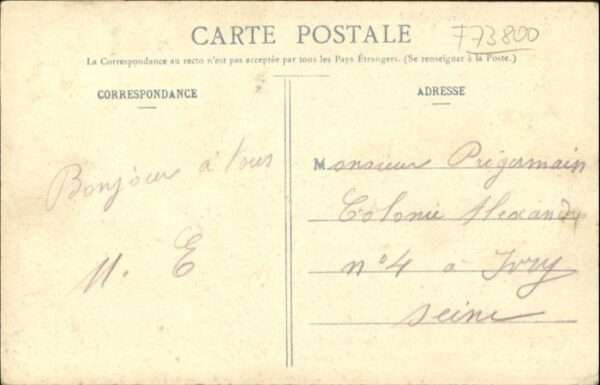 CARTE POSTALE
F73800
La Correspondance au recto n'est pas acceptée par tous les Pays Étrangers. (Se renseigner à la Poste.)
CORRESPONDANCE
Bonjour à tous
M. E
ADRESSE
Monsieur Prigermain
Colonie Alexandre
n° 4 à Ivry
Seine